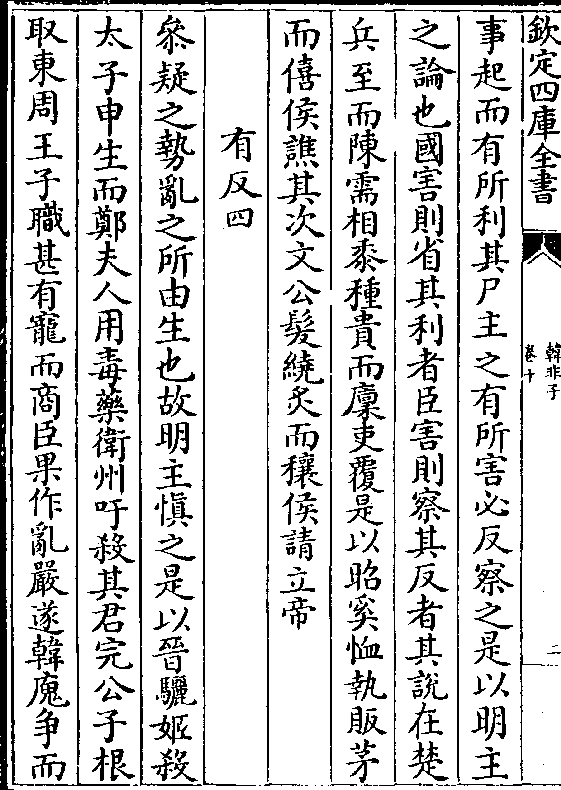 欽定四庫全書
韓非子
卷十
二
事起而有所利其尸主之有所害必反察之是以明主
之論也國害則省其利者臣害則察其反者其說在楚
兵至而陳需相黍種貴而廩吏覆是以昭奚恤執販茅
而僖侯譙其次文公髮繞炙而穰侯請立帝
有反四
叅疑之勢亂之所由生也故明主慎之是以晉驪姬殺
太子申生而鄭夫人用毒藥衛州吁殺其君完公子根
取東周王子職甚有寵而商臣果作亂嚴遂韓廆争而